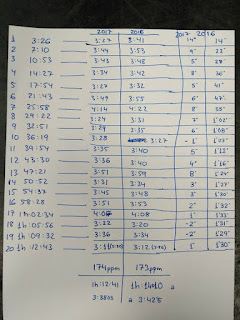 2017 2016 2017 2016
1 3:26 3:27 3:41 14"
2 7:10 3:44 3:53 23"
3 10:53 3:43 3:48 5" 28"
4 14:27 3:34 3:42 8" 36"
5 17:54 3:27 3:32 5" 41"
6 21:43 3:49 3:55 6" 47"
7 25:58 4:14 4:22 8" 55"
8 29:22 3:24 3:31 7" 1'02"
9 32:51 3:29 3:35 6" 1'08"
10 36:19 3:28 -1" 1'07"
11 39:54 3:35 3:40 5" 1'12"
12 43:30 3:36 3:40 4" 1'16"
13 47:21 3:51 3:59 8" 1'24"
14 50:52 3:31 3:34 3" 1'27"
15 3:45 3:48 3" 1'30"
16 58:28 3:51 3:53 2" 1'32"
17 1h02:34 4:08 1" 1'33"
18 1h:05:56 3:22 3:20 -2" 1'31"
19 1h:09:32 3:36 3:34 -2" 1'29"
20 1h:12:43 1" 1'30"
174ppm 173ppm
1h:12:41